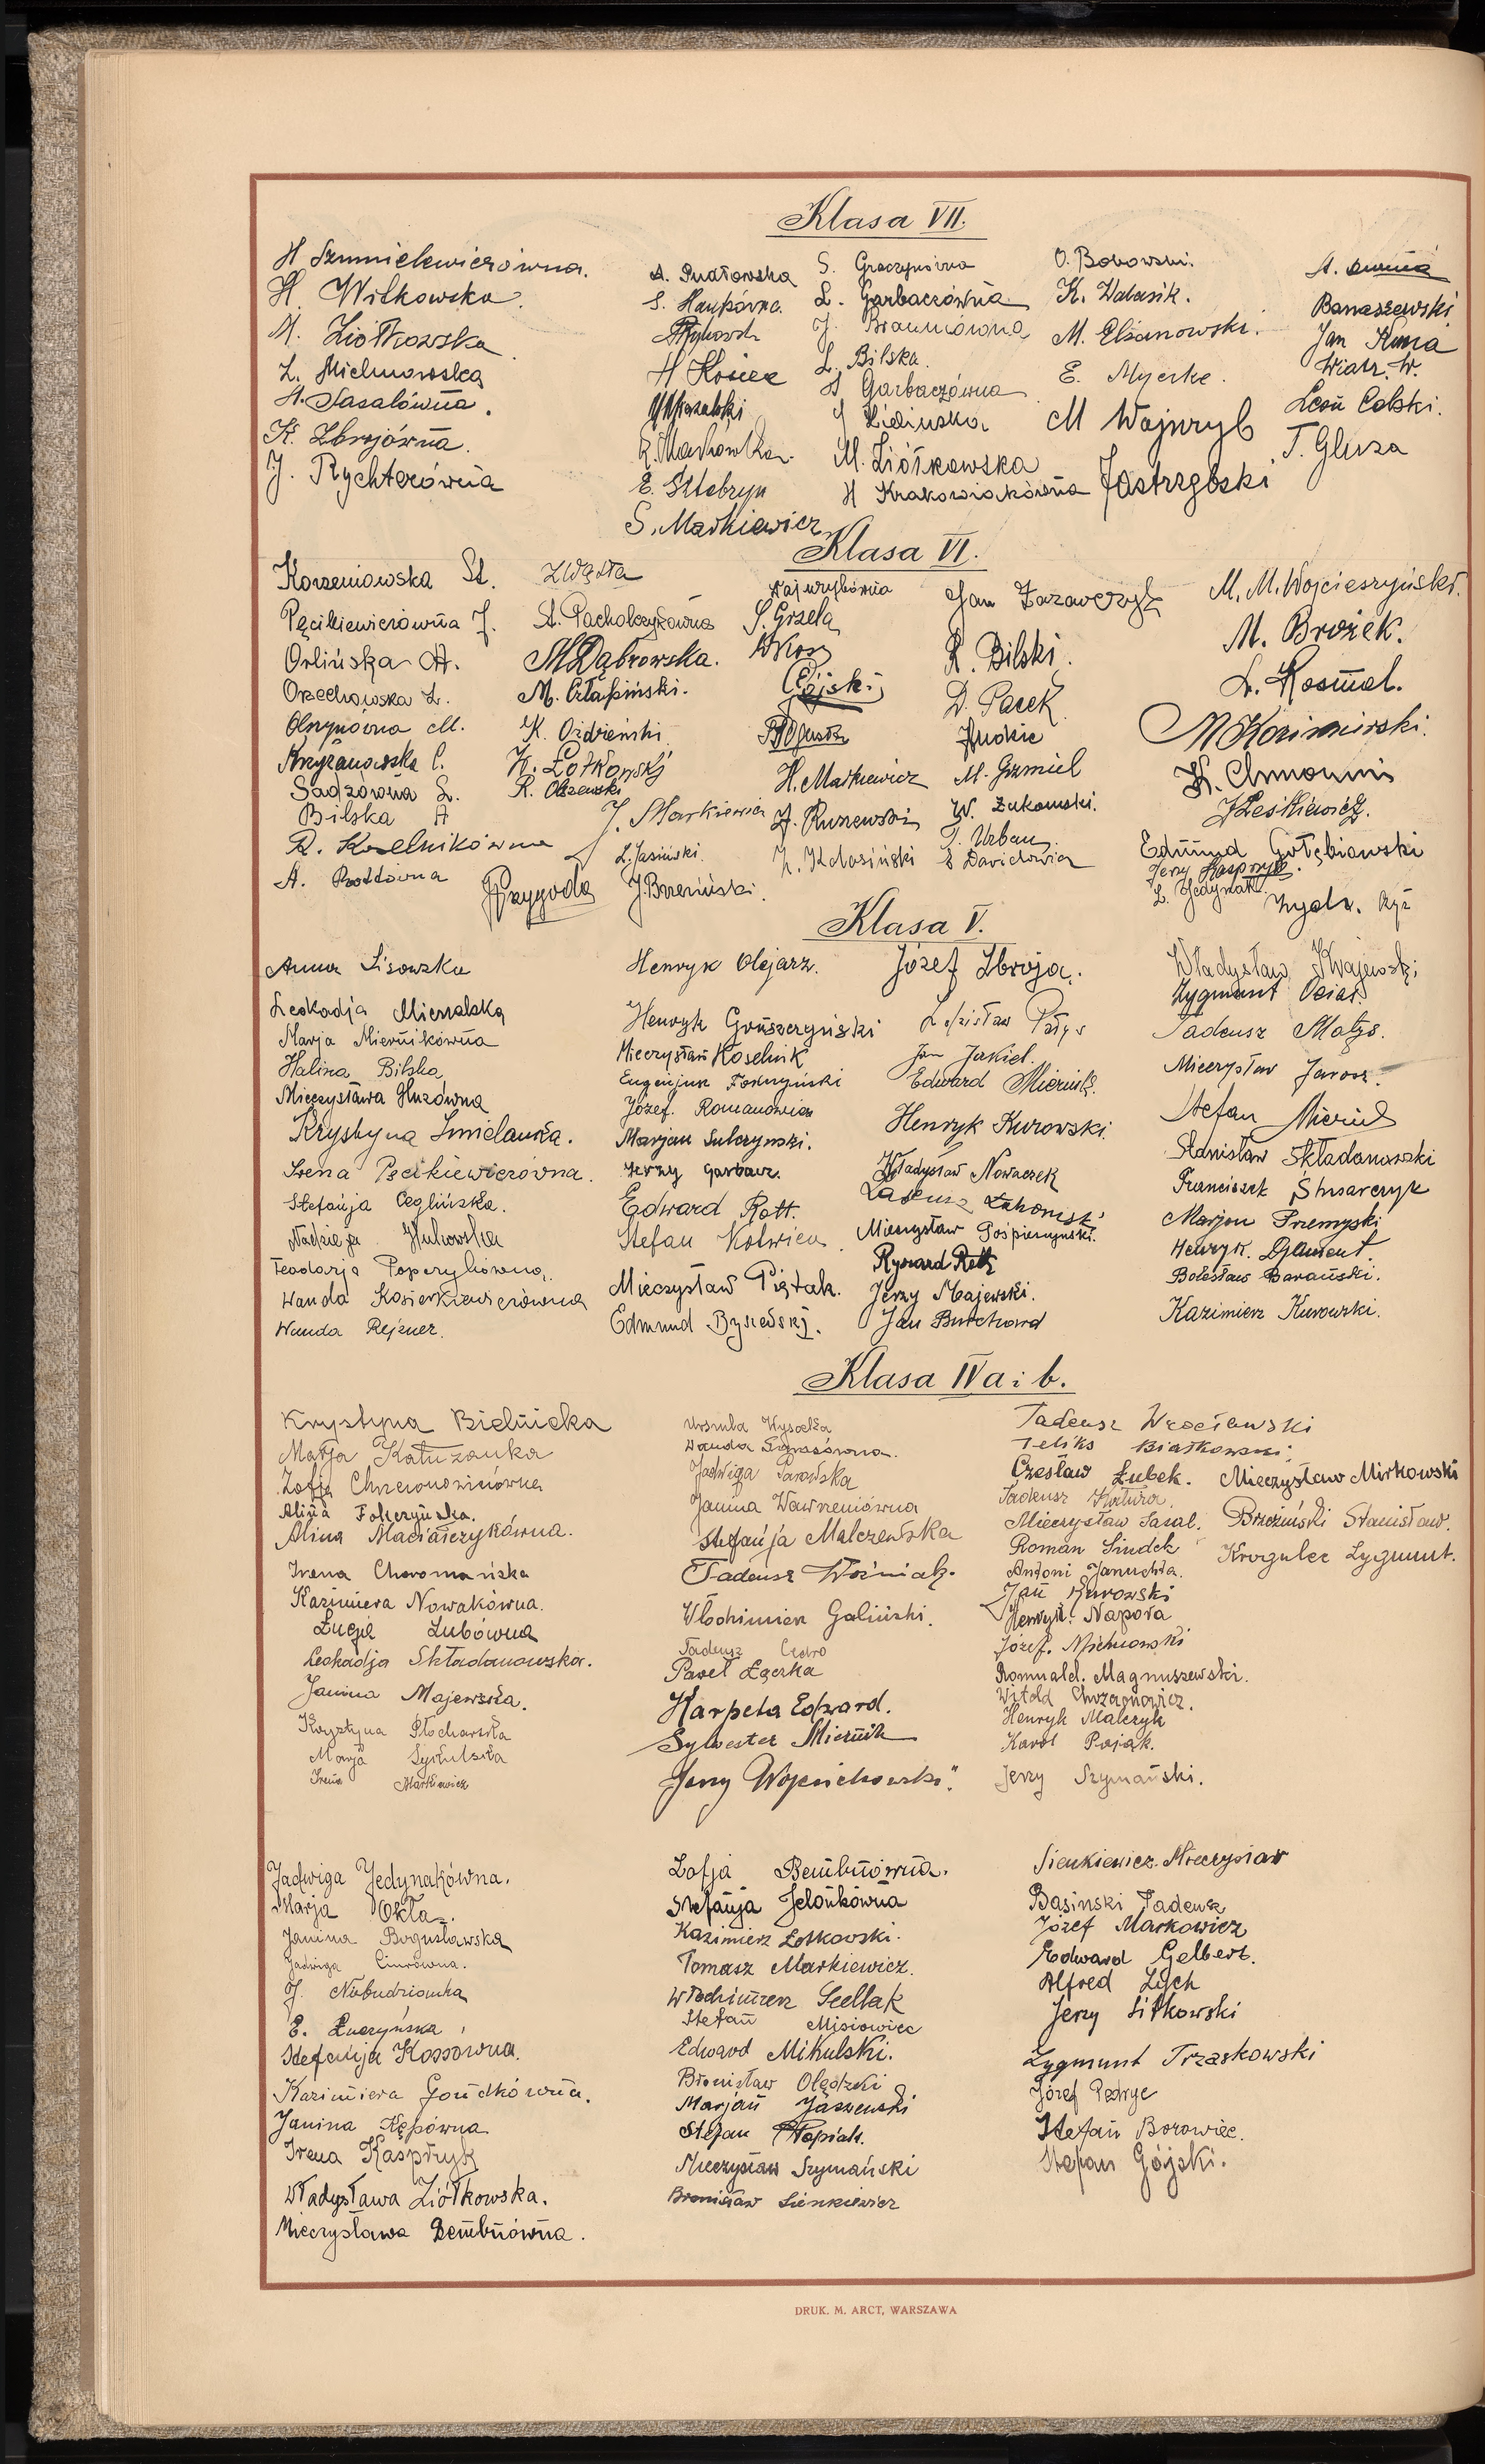 Klasa VII.
H Szmielewiczówna.
H. Witkowska.
M. Ziółkowska.
Z. Michnowska
H. Sasalówna.
K. Zbrojówna.
J. Rychterówna
A. Pudłowska
S. Haupówna.
H Kosiec
R. Machowska.
E. Sztobryn
S. Markiewicz
S. Graczykówna
L. Garbaczówna
J. Braunówna
L. Bilska.
H Garbaczówna
J Zielińska
M. Ziółkowska
H Krakowiakówna
O. Bobowski.
K. Walasik.
M. Elżanowski.
E. Myerke.
M Wajnryb
Jastrzębski
Banaszewski
Jan Kunia
Wiatr. W.
Leon Colski.
T. Gluza
Klasa VI.
Korzeniowska St.
Pęcikiewiczówna J.
Orlińska A.
Orzechowska Z.
Olszynówna M.
Krzyżanowska C.
Sadzówna L.
Bilska A
R. Koselnikówna
A. Rottówna
Zwązła
A. Pacholczykówna
M Dąbrowska.
M. Człapiński.
K. Oździeński
K. Łotkowski
R. Olszewski
J. Markiewicz
L. Jasiński.
J Przygoda
J. Brzeziński.
Wajnrybówna
S. Grzela
W Kos
Gójski
H. Markiewicz
Z. Ruszewski
Jan Zazawczyk
R. Bilski.
D. Pasek
Judkie
M. Gumiel
W. Żukowski.
T. Urban
S Davidowicz
M. M. Wojcieszyński.
M. Brożek.
L. Kosmal.
M Kozimirski.
J Leśkiewicz.
Edmund Gołębiowski
Jerzy Kasprzyk.
L. Jedynak
Klasa V.
Anna Lisowska
Leokadja Mierzalska
Marja Miernikówna
Halina Bilska
Mieczysława Huzówna
Krystyna Zmielanka.
Irena Pęcikiewiczówna.
Stefanja Ceglińska.
Nadzieja Hukowska
Teodorja Poperykówna.
Wanda Kosierkiewiczówna
Wanda Rejzner.
Henryk Olejarz.
Henryk Gruszczyński
Mieczysław Koselnik
Eugenjusz Fokczyński
Józef. Romanowicz
Marjan Sulczyński.
Jerzy Garbacz.
Edward Rott.
Stefan Kotwica
Mieczysław Piątak.
Edmund Byszewski.
Józef Zbroja.
Zdzisław Pałys
Jan Jakiel.
Edward Miernik.
Henryk Kurowski.
Władysław Nowaczek
Tadeusz Żukowski
Mieczysław Pośpieszyński.
Ryszard Rott
Jerzy Majewski.
Jan Burchard
Władysław Kwajewski
Zygmunt Osiał.
Tadeusz Małys.
Mieczysław Jarosz.
Stefan Miernik
Stanisław Składanowski
Franciszek Ślusarczyk
Marjan Przemyski
Henryk. Djament.
Bolesław Barański.
Kazimierz Kurowski.
Klasa IV a i b.
Krystyna Bielnicka
Marja Kałużanka
Zofja Chrzanowiczówna
Alina Fokczyńska.
Alina Maciaszczykówna.
Irena Choromańska
Kazimiera Nowakówna.
Łucja Zubówna
Leokadja Składanowska.
Janina Majewska.
Krystyna Płocharska
Marja Syskulska
Irena Markiewicz
Urszula Wysocka
Wanda Sarnówna.
Jadwiga Parowska
Janina Wawrzeniówna
Stefanja Malczewska
Tadeusz Woźniak.
Włodzimierz Galiński.
Tadeusz Cedro
Paweł Łączka
Karpeta Edward.
Sylwester Miernik
Jerzy Wojciechowski.
Tadeusz Wrocławski
Feliks Białkowski.
Czesław Łubek. Mieczysław Mirkowski
Tadeusz Katura.
Mieczysław Sasal. Brzeziński Stanisław.
Roman Sindek Krogulec Zygmunt.
Antoni JanucHta.
Jan Kurowski
Henryk. Napora
Józef. Michnowski
Romuald. Magnuszewski.
Witold Chrzanowicz.
Henryk Malczyk
Karol Pająk.
Jerzy Szymański.
Jadwiga Jedynakówna.
Marja Okła.
Janina Bogusławska
Jadwiga Ciurówna.
J. Niebudzianka
E. Łuczyńska
Stefanja Kossowna.
Kazimiera Goudkówna.
Janina Kępówna.
Irena Kasprzyk
Władysława Ziółkowska.
Mieczysława Dembnówna.
Zofja Dembnówna.
Stefanja Jelonkówna
Kazimierz Łotkowski.
Tomasz Markiewicz.
Włodzimierz Seellak
Stefan Misiowiec
Edward Mikulski.
Bronisław Olędzki
Marjan Jaszewski
Stefan Płopiak.
Mieczysław Szymański
Bronisław Sienkiewicz
Sienkiewicz Mieczysław
Basiński Tadeusz
Józef Markowicz
Edward Gelbert.
Alfred Zych
Jerzy Sitkowski
Zygmunt Trzaskowski
Józef Pedryc
Stefan Borowiec.
Stefan Gójski.
DRUK. M. ARCT, WARSZAWA